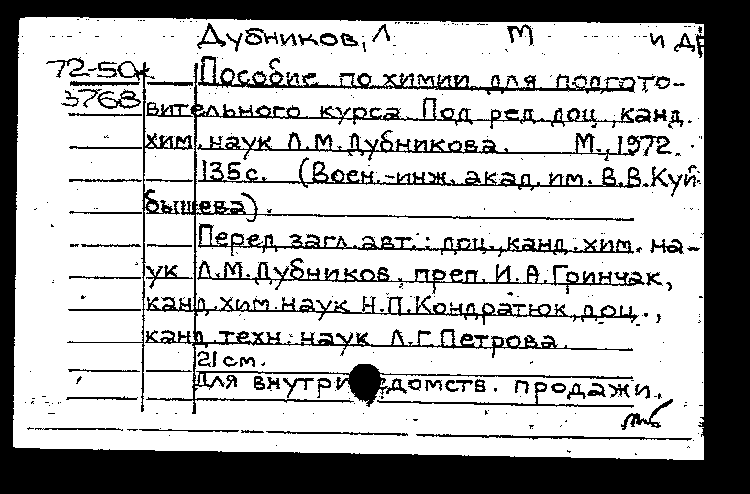 Дубников, Л М и др
72-50
3768
Пособие по химии для подгото-
вительного курса. Под ред. доц., канд.
хим. наук Л.М.Дубникова. М., 1972.
135с. (Воен.-инж. акад. им. В.В.Куй
бышева).
Перед загл. авт.: доц., канд. хим. на-
ук Л.М.Дубников, преп. И.А.Гринчак,
канд. хим. наук Н.П.Кондратюк, доц.,
канд. техн. наук Л.Г.Петрова.
21см.
Для внутри едомств. продажи.